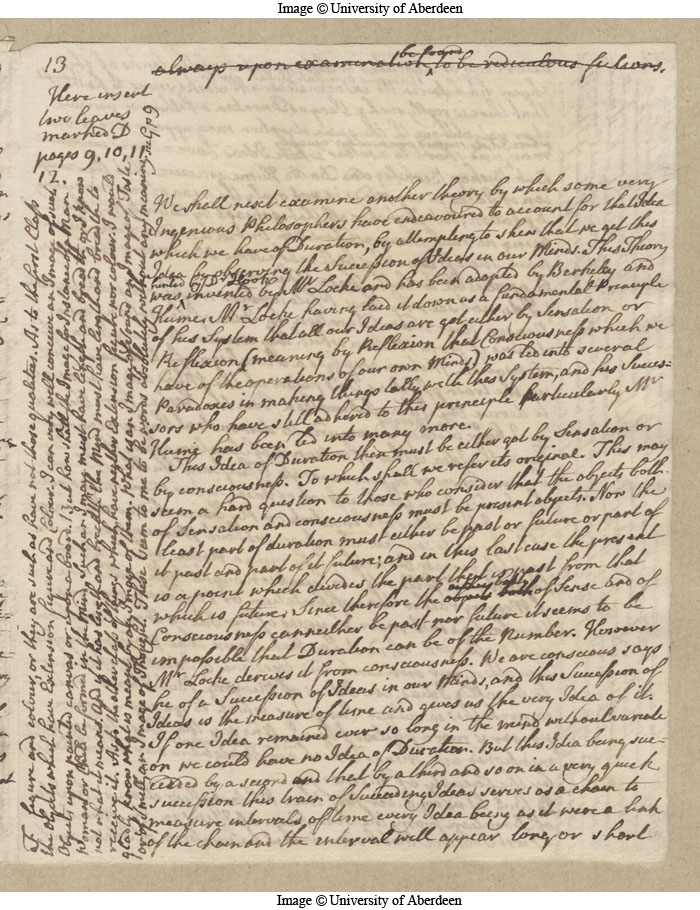 Image © University of Aberdeen
13
always upon examination be found to be rediculous fictions.
Here insert
two leaves
marked D
pages 9, 10, 11
12.
We shall next examine another theory by which some very
Ingenious Philosophers have endeavoured to account for that Idea
which we have of Duration, by attempting to shew that we get this
Idea by observing the Succession of Ideas in our Minds. This Theory
hinted by Dr Hook
was invented by Mr Locke and has been adopted by Berkeley and
Hume. Mr Locke having laid it down as a fundamental Principle
of his System that all our Ideas are got either by Sensation or
Reflexion (meaning by Reflexion that Consciousness which we
have of the operations of our own Minds) was led into several
Paradoxes in making things tally with this System, and his Succes-
sors who have still adhered to this principle particularly Mr
Hume has been led into many more.
This Idea of Duration then must be either got by Sensation or
by consciousness. To which shall we refer its original. This may
seem a hard question to those who consider that the objects both
of Sensation and consciousness must be present objects. Nor the
least part of duration must either be past or future or part of
it past and part of it future; and in this last case the present
is a point which divides the part that is past from that
which is future, Since therefore the objects both of Sense and of
Consciousness can neither be past nor future it seems to be
impossible that Duration can be of the Number. However
Mr Locke derives it from consciousness. We are conscious says
he of a Succession of Ideas in our Minds, and this Succession of
Ideas is the measure of time and gives us the very Idea of it.
If one Idea remained ever so long in the mind without variati
on we could have no Idea of Duration. But this Idea being suc-
ceeded by a second and that by a third and so on in a very quick
succession this train of Succeeding Ideas serves as a chain to
measure intervals of time every Idea being as it were a link
of the chain and the interval will appear long or short
of figure and colour, or they are such as have not those qualities. As to the first Class
the Objects which have Extension figure and Colour. I can very well conceive an Image of such
Objects upon painted canvas or upon a board. But how shall the Image for instance of a Man
Image of Taste
These seem to me to be words absolutely without any meaning. see G. p 9
Image © University of Aberdeen